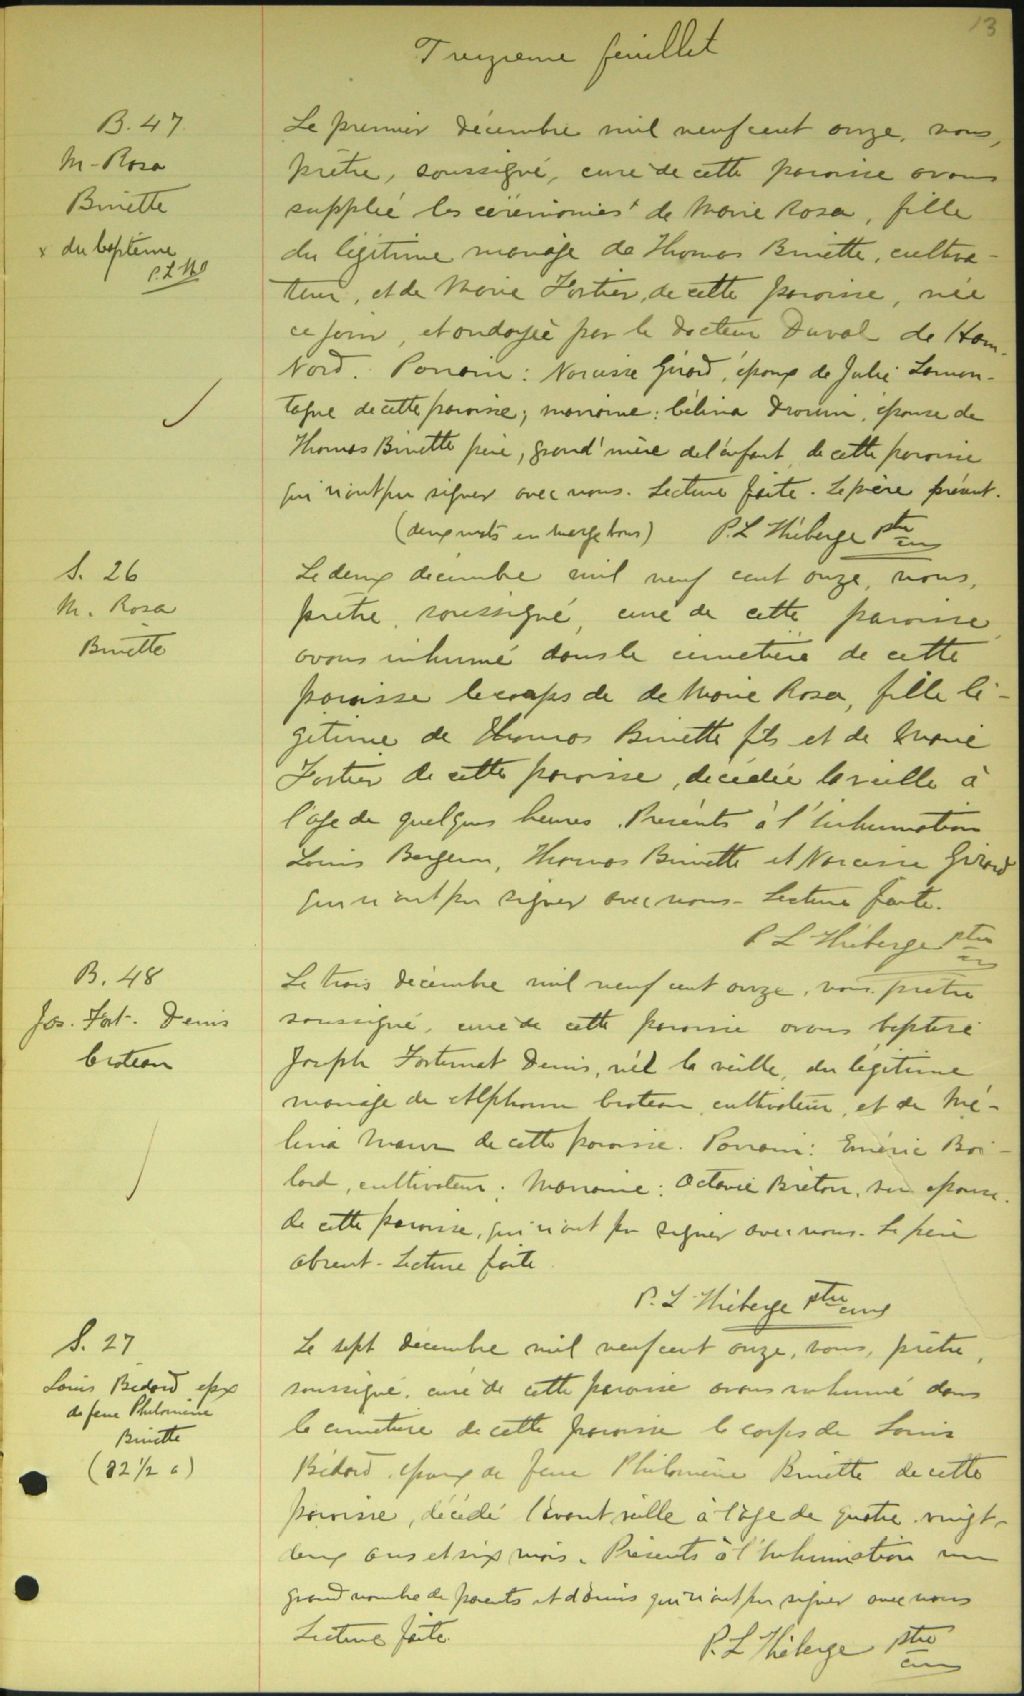 13
Treizieme feuillet
B. 47
M-Rosa
Binette
x du baptême
P.L.Th
Le premier décembre mil neuf cent onze, nous,
prêtre, soussigné, curé de cette paroisse avons
supplié les cérémonies x de Marie Rosa, fille
du légitime mariage de Thomas Binette, cultiva-
teur, et de Marie Fortier, de cette paroisse, née
ce jour, et ondoyée par le docteur Duval de Ham-
Nord. Parrain: Narcisse Girard, époux de Julie Lamon-
tagne de cette paroisse; marraine: Célina Drouin, épouse de
Thomas Binette père, grand'mère de l'enfant, de cette paroisse
qui n'ont pu signer avec nous. Lecture faite. Le père présent.
(deux mots en marge bons) P. L Théberge ptre
curé
S. 26
M. Rosa
Binette
Le deux décembre mil neuf cent onze, nous,
prêtre, soussigné, curé de cette paroisse,
avons inhumé dans le cimetière de cette
paroisse le corps de de Marie Rosa, fille lé-
gitime de Thomas Binette fils et de Marie
Fortier de cette paroisse, décédée la veille à
l'âge de quelques heures. Présents à l'inhumation
Louis Bergeron, Thomas Binette et Narcisse Girard
qui n'ont pu signer avec nous- Lecture faite.
P L Théberge ptre
curé
B. 48
Jos. Fort. Denis
Croteau
Le trois décembre mil neuf cent onze, nous prêtre
soussigné, curé de cette paroisse avons baptisé
Joseph Fortunat Denis, né la veille, du légitime
mariage de Alphonse Croteau, cultivateur, et de Mé-
lina de cette paroisse. Parrain: Eméric Boi-
lard, cultivateur; Marraine: Octavie Breton, son épouse.
de cette paroisse, qui n'ont pu signer avec nous. Le père
absent- Lecture faite
P. L Théberge ptre curé
S. 27
Louis Bédard epx
de feue Philomène
Binette
(82 1/2 a)
Le sept décembre mil neuf cent onze, nous, prêtre,
soussigné, curé de cette paroisse avons inhumé dans
le cimetière de cette paroisse le corps de Louis
Bédard, époux de feue Philomène Binette de cette
paroisse, décédé l'avant veille à l'âge de quatre-vingt-
deux ans et six mois. Présents à l'inhumation un
grand nombre de parents et d'amis qui n'ont pu signer avec nous
Lecture faite.
P. L Théberge ptre
curé